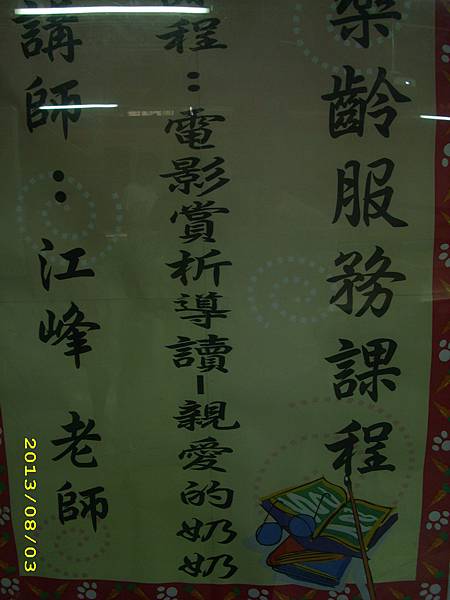 樂齡服務課程
程：電影賞析導讀-親愛的奶奶
講師：江峰 老師
2013/08/03